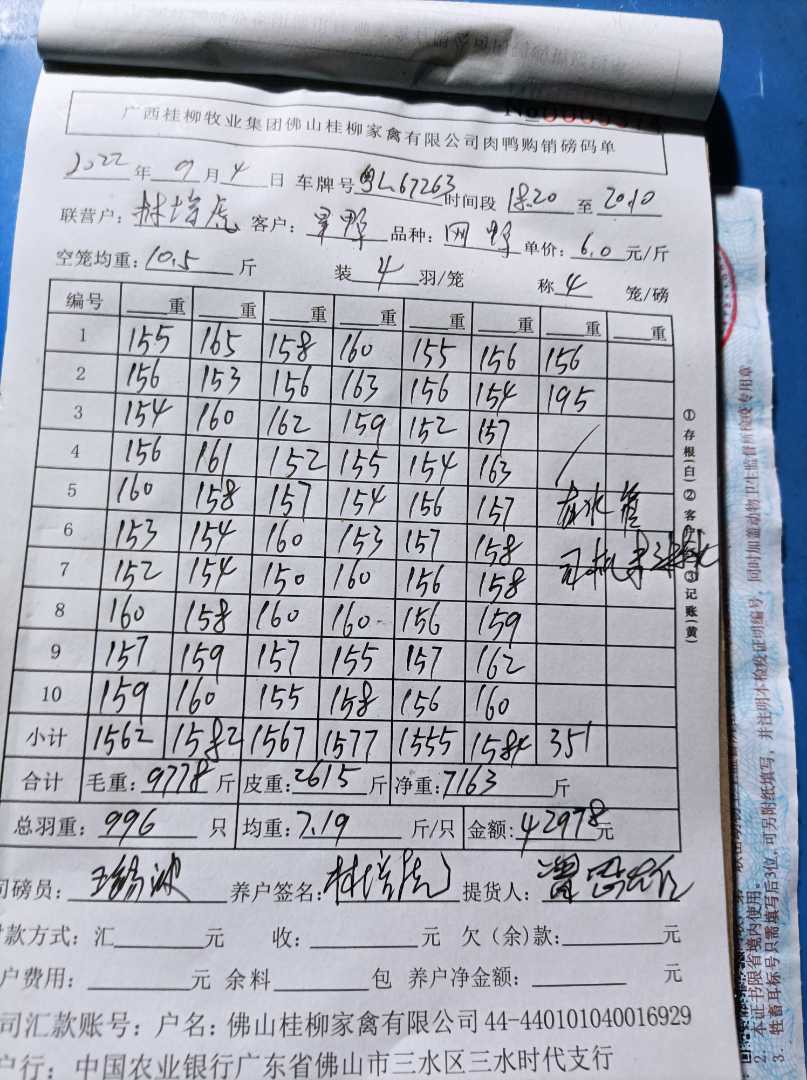 广西桂柳牧业集团佛山桂柳家禽有限公司肉鸭购销磅码单
2022 年 9 月 4 日 车牌号 粤L67263 时间段 18.20 至 20.10
联营户: 林增虎 客户: 品种: 单价: 6.0 元/斤
空笼均重: 10.5 斤 装 4 羽/笼 称 4 笼/磅
编号 重 重 重 重 重 重 重 重
1 155 165 158 160 155 156 156
2 156 153 156 163 156 154 195
3 154 160 162 159 152 157
4 156 161 152 155 154 163
5 160 158 157 154 156 157
6 153 154 160 153 157 158
7 152 154 150 160 156 158
8 160 158 160 160 156 159
9 157 159 157 155 157 162
10 159 160 155 158 156 160
小计 1562 1582 1567 1577 1555 1584 351
合计 毛重: 9778 斤 皮重: 2615 斤 净重: 7163 斤
总羽重: 996 只 均重: 7.19 斤/只 金额: 42978 元
司磅员: 养户签名: 林增虎 提货人:
付款方式: 汇 元 收: 元 欠(余)款: 元
户费用: 元 余料 包 养户净金额: 元
司汇款账号: 户名: 佛山桂柳家禽有限公司 44-440101040016929
户行: 中国农业银行广东省佛山市三水区三水时代支行
①存根(白)②客户 ③记账(黄)
2、本证书限省境内使用。
3、牲畜耳标号只需填写后3位,可另附纸填写,并注明本检疫证明编号,同时加盖动物卫生监督所检疫专用章。